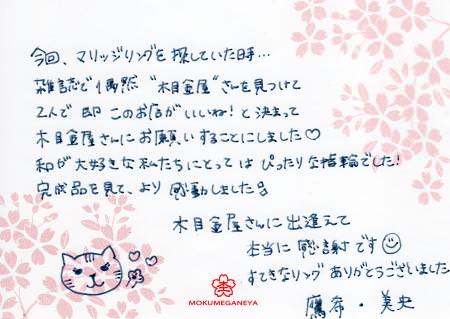 今回、マリッジリングを探していた時…
雑誌で偶然 "木目金屋"さんを見つけて
2人で即 このお店がいいね！と決まって
木目金屋さんにお願いすることにしました♡
和が大好きな私たちにとっては ぴったりな指輪でした！
完成品を見て、より感動しました
木目金屋さんに出逢えて
本当に感謝です☺
すてきなリング ありがとうございました
鷹希・美央
MOKUMEGANEYA